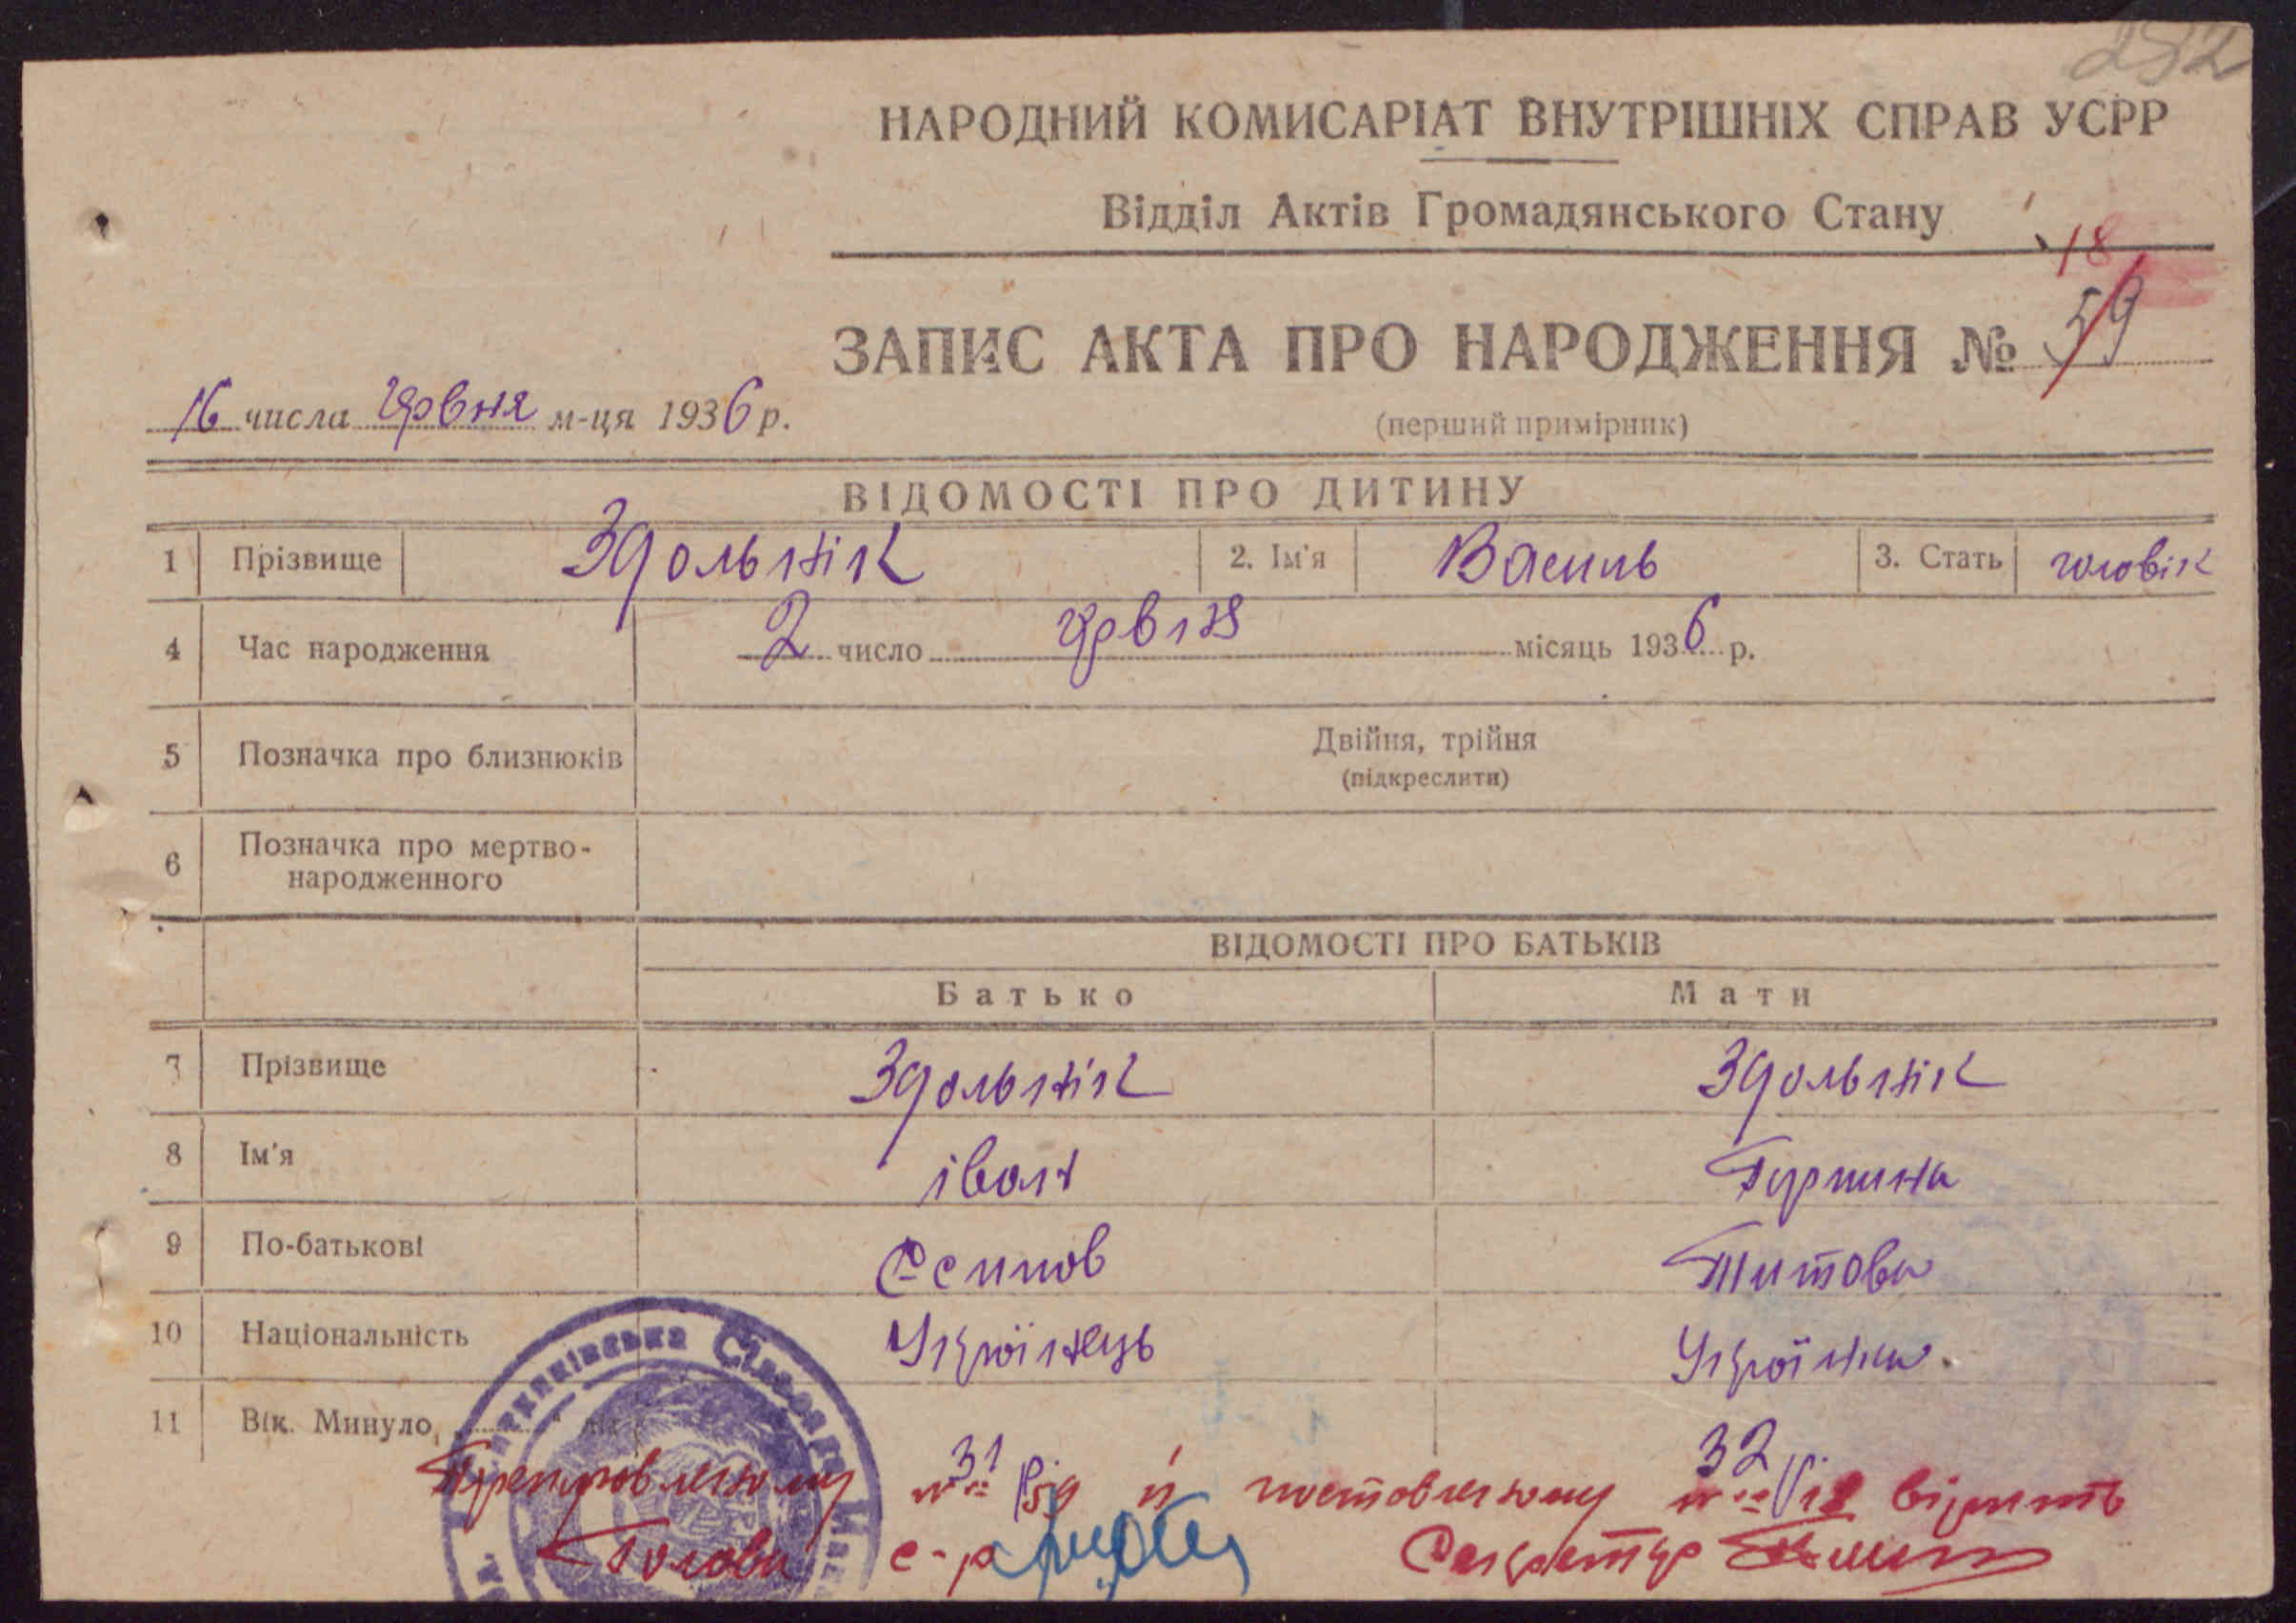 282
НАРОДНИЙ КОМИСАРІАТ ВНУТРІШНІХ СПРАВ УСРР
Відділ Актів Громадянського Стану
18
ЗАПИС АКТА ПРО НАРОДЖЕННЯ № 59
16 числа червня м-ця 1936 р.
(перший примірник)
ВІДОМОСТІ ПРО ДИТИНУ
1 Прізвище Здольнік 2. Ім'я Василь 3. Стать чоловік
4 Час народження 2 число червня місяць 1936 р.
5 Позначка про близнюків Двійня, трійня
(підкреслити)
6 Позначка про мертво-
народженного
ВІДОМОСТІ ПРО БАТЬКІВ
Батько Мати
7 Прізвище Здольнік Здольнік
8 Ім'я іван
9 По-батькові Семинов Титова
10 Національність Українець Українка
11 Вік. Минуло літ 31 рік 32
Сільська
№ 59 й поставленому № 18 вірить
Голова с-р Секретар